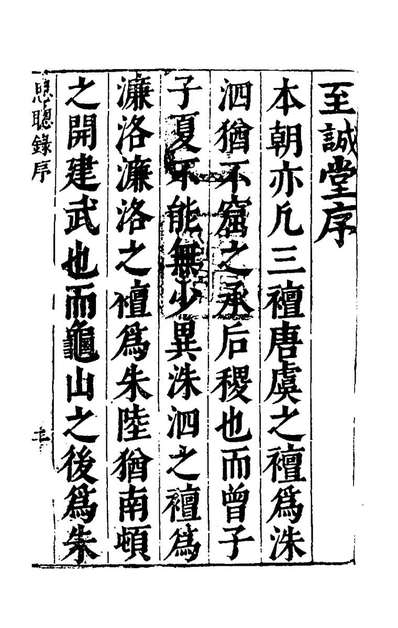 至誠堂序
本朝亦凡三襢唐虞之襢為洙
泗猶不窋之承后稷也而曾子
子夏不能無少異洙泗之襢為
濂洛濂洛之襢為朱陸猶南頓
之開建武也而龜山之後為朱
思聰錄序